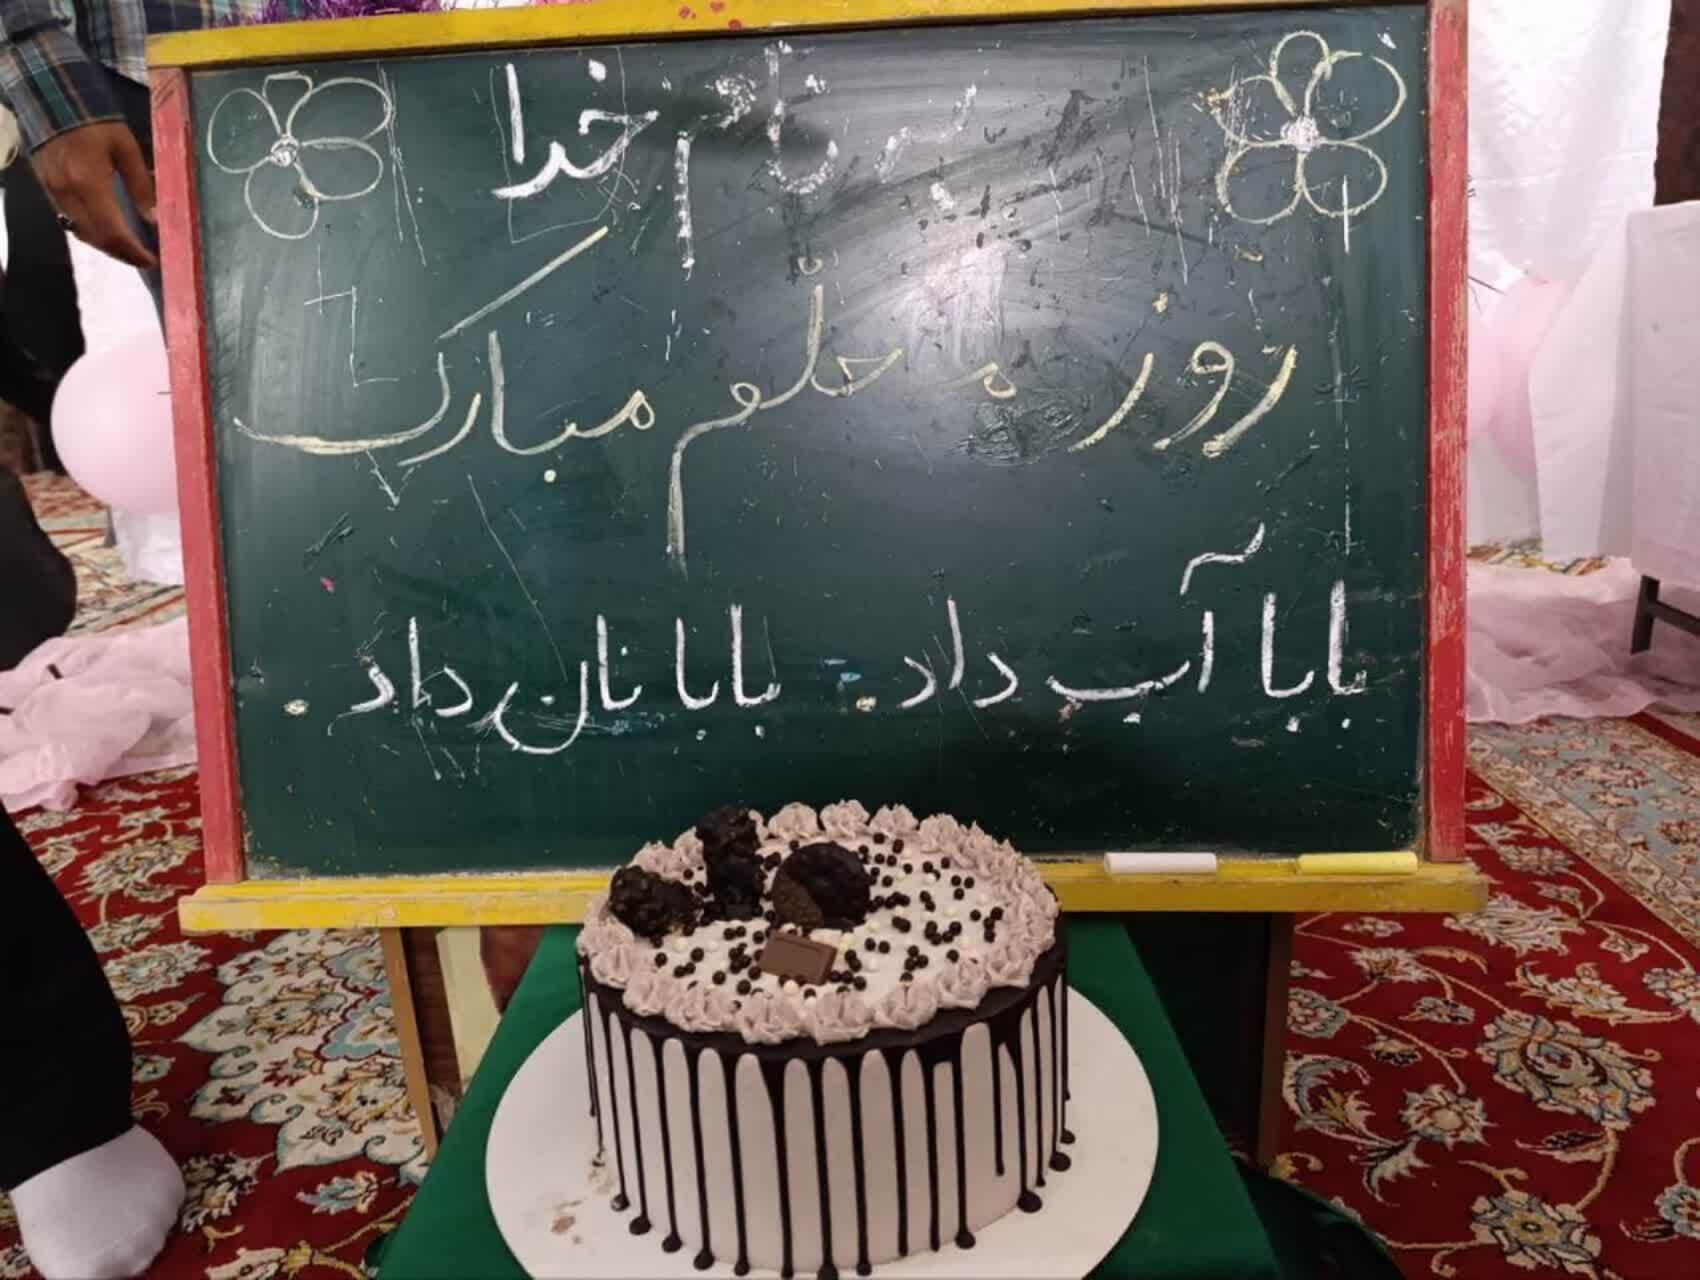 به نام خدا
روز معلّم مبارک
بابا آب داد. بابا نان داد.